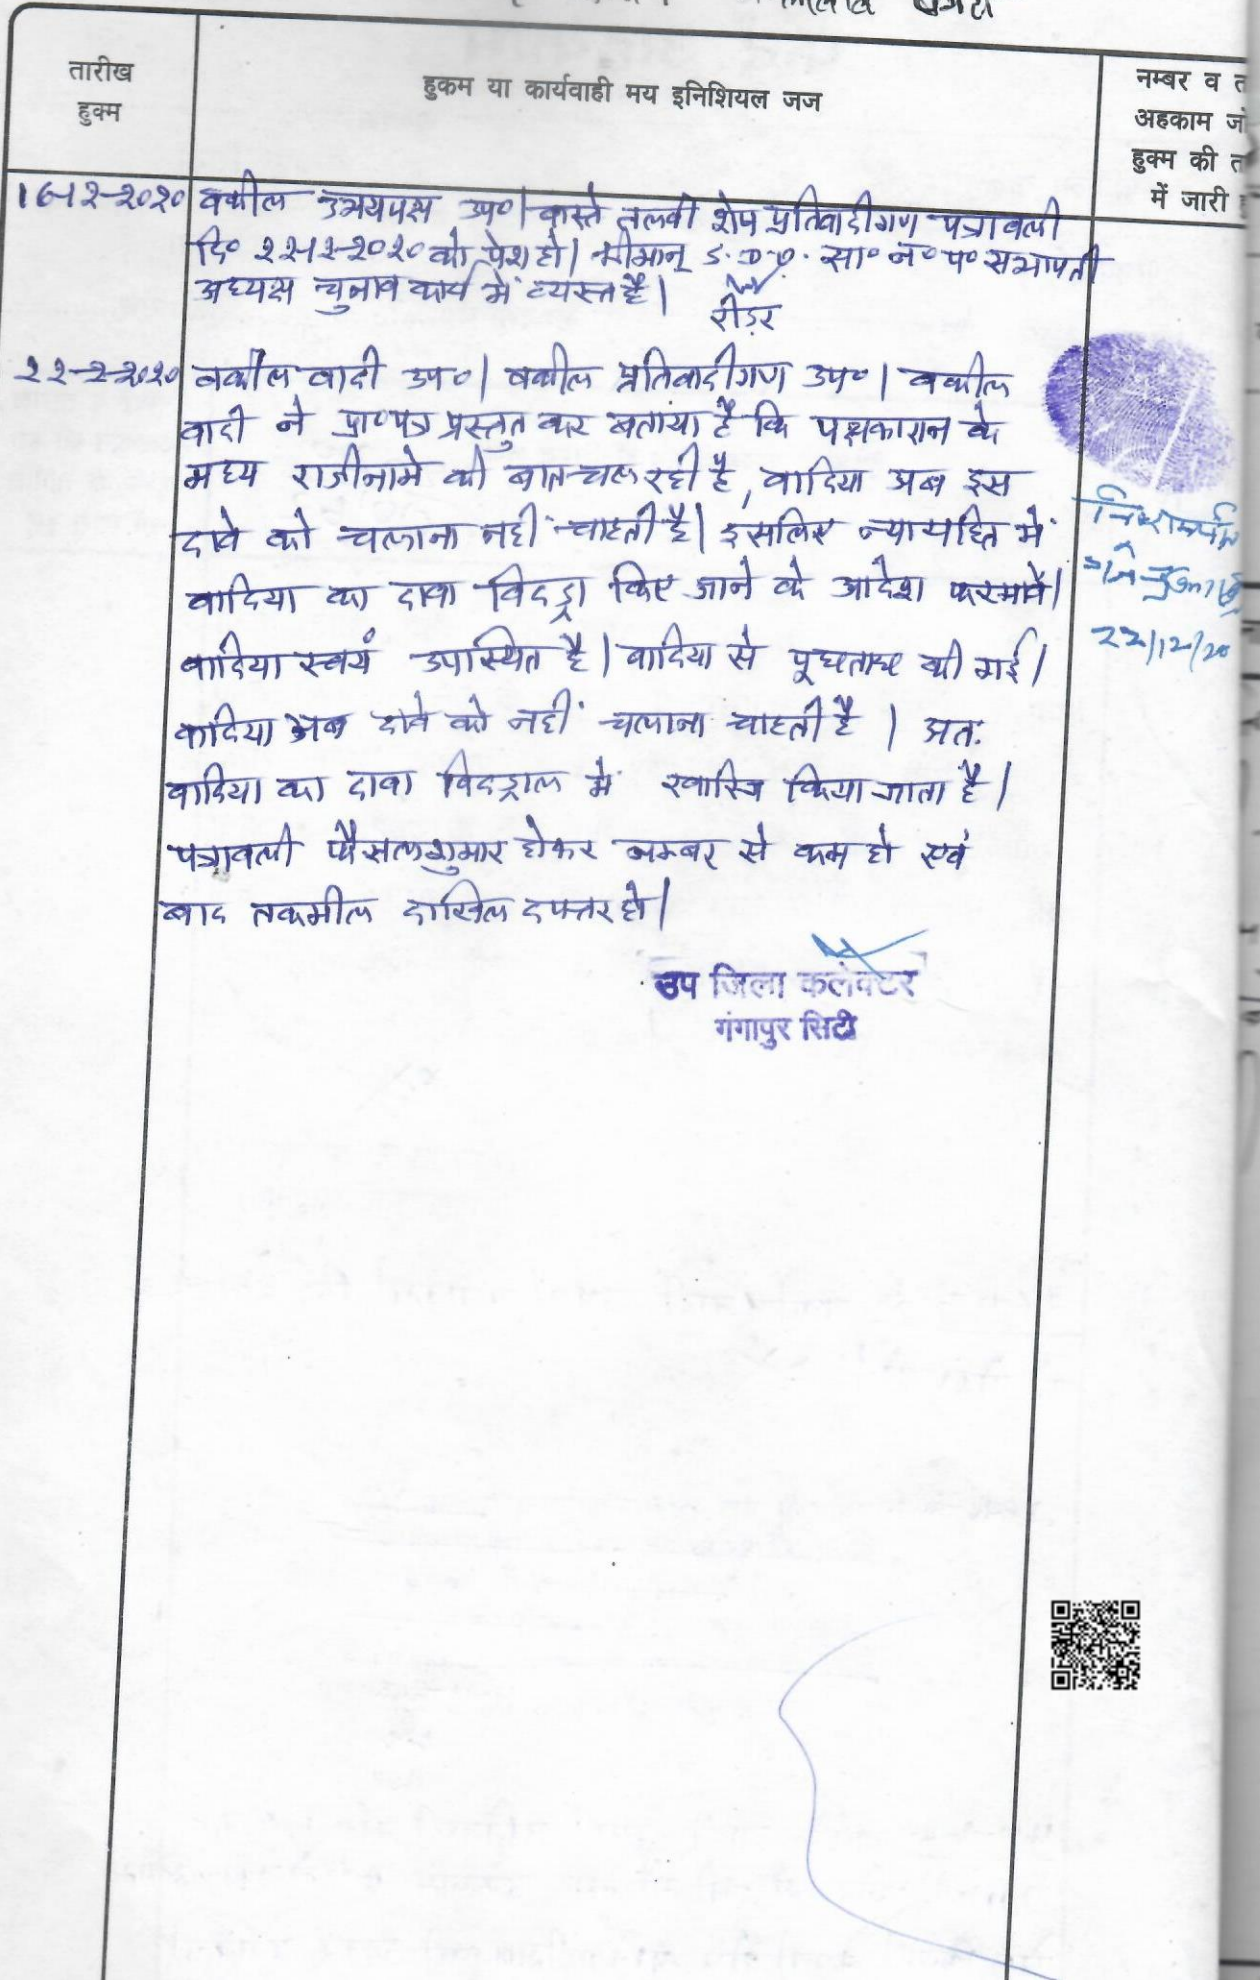 तारीख
हुक्म
हुकम या कार्यवाही मय इनिशियल जज
नम्बर व त
अहकाम जो
हुक्म की त
में जारी
16-12-2020 वकील उभयपक्ष उप०। वास्ते तलबी शेष प्रतिवादीगण पत्रावली
दि० 22-12-2020 को पेश हो। श्रीमान् S.D.O. सा० न०प० सभापती
अध्यक्ष चुनाव कार्य में व्यस्त है।
रीडर
22-2-2020 वकील वादी उप०। वकील प्रतिवादीगण उप०। वकील
वादी ने प्रा०पत्र प्रस्तुत कर बताया है कि पक्षकारान के
मध्य राजीनामे की बात चल रही है, वादिया अब इस
दावे को चलाना नहीं चाहती है। इसलिए न्यायहित में
वादिया का दावा विदड्रा किए जाने के आदेश फरमावें।
वादिया स्वयं उपास्थित है। वादिया से पूछताछ की गई।
वादिया अब दावे को नहीं चलाना चाहती है। अतः
वादिया का दावा विदड्राल में खारिज किया जाता है।
पत्रावली फैसलशुमार होकर नम्बर से कम हो एवं
बाद तकमील दाखिल दफ्तर हो।
उप जिला कलेक्टर
गंगापुर सिटी
22/12/20